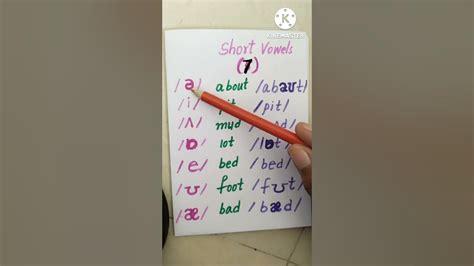 KINEMASTER
Short Vowels
(7)
/ə/ about /abaʊt/
/i/ /pit/
/ʌ/ mud
/ɒ/ lot /lɒt/
/e/ bed /bed/
/ʊ/ foot /fʊt/
/æ/ bad /bæd/